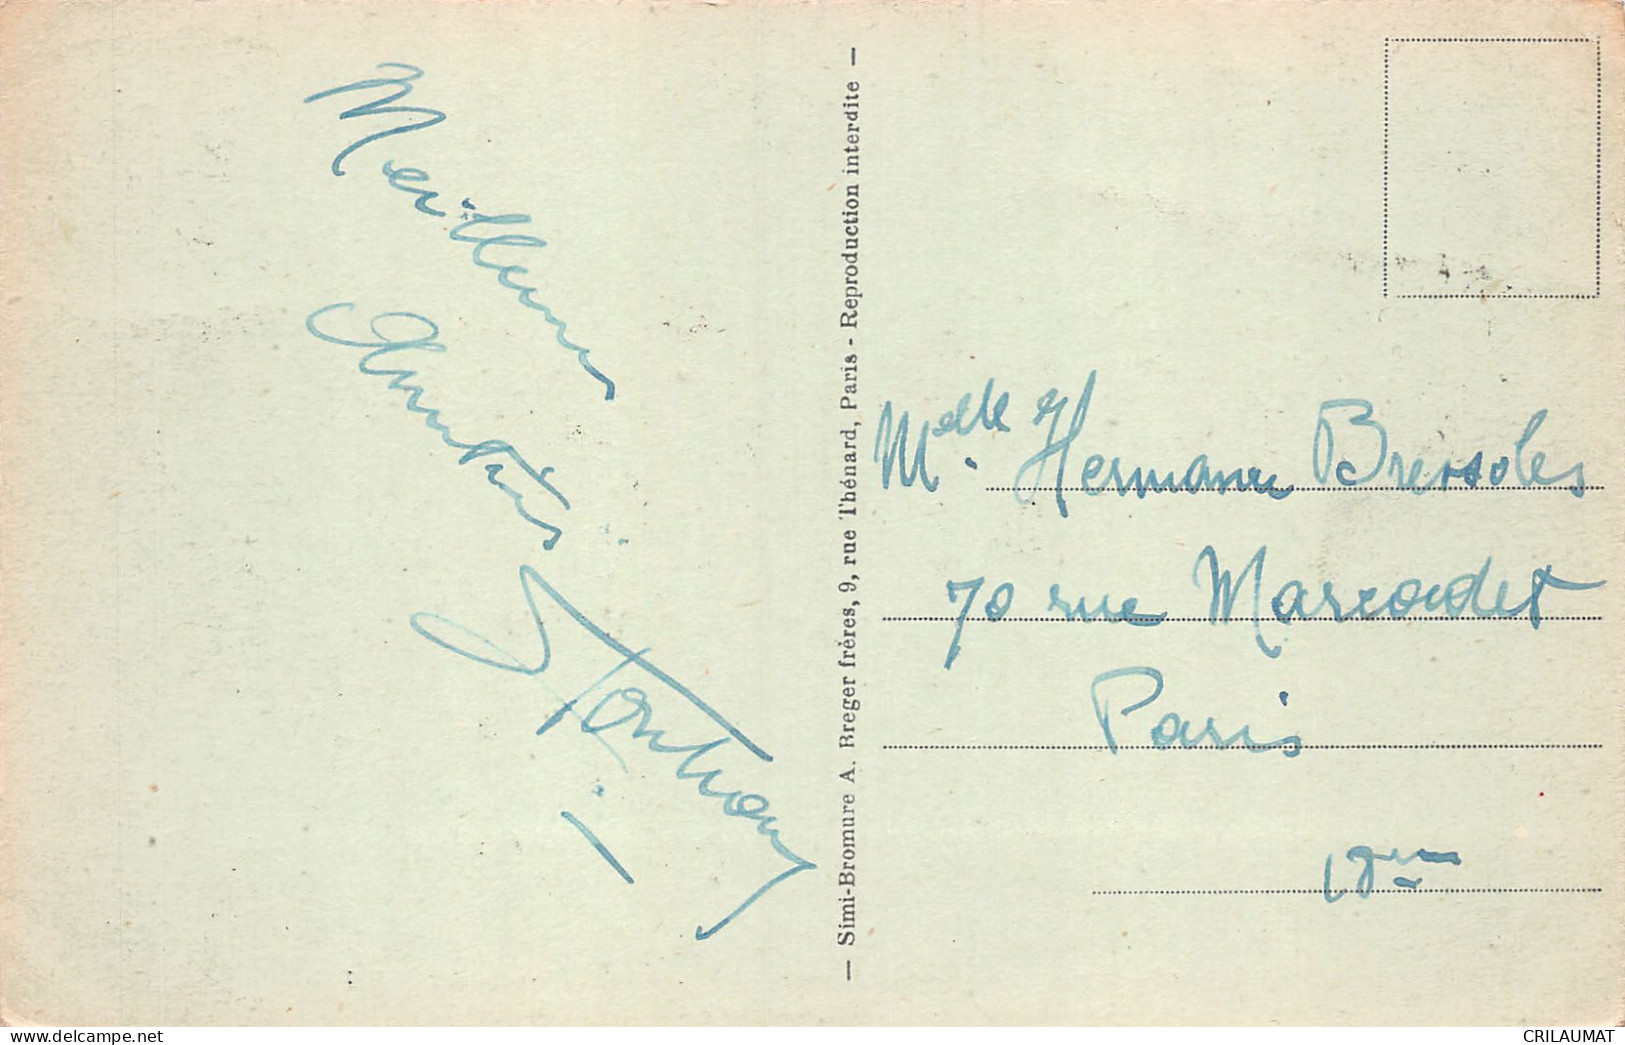 Meilleures
Amitiés
— Simi-Bromure A. Breger frères, 9, rue Thénard, Paris - Reproduction interdite —
Melle. Hermance Bressoles
70 rue Marcadet
Paris
18eme
delcampe.net
CRILAUMAT